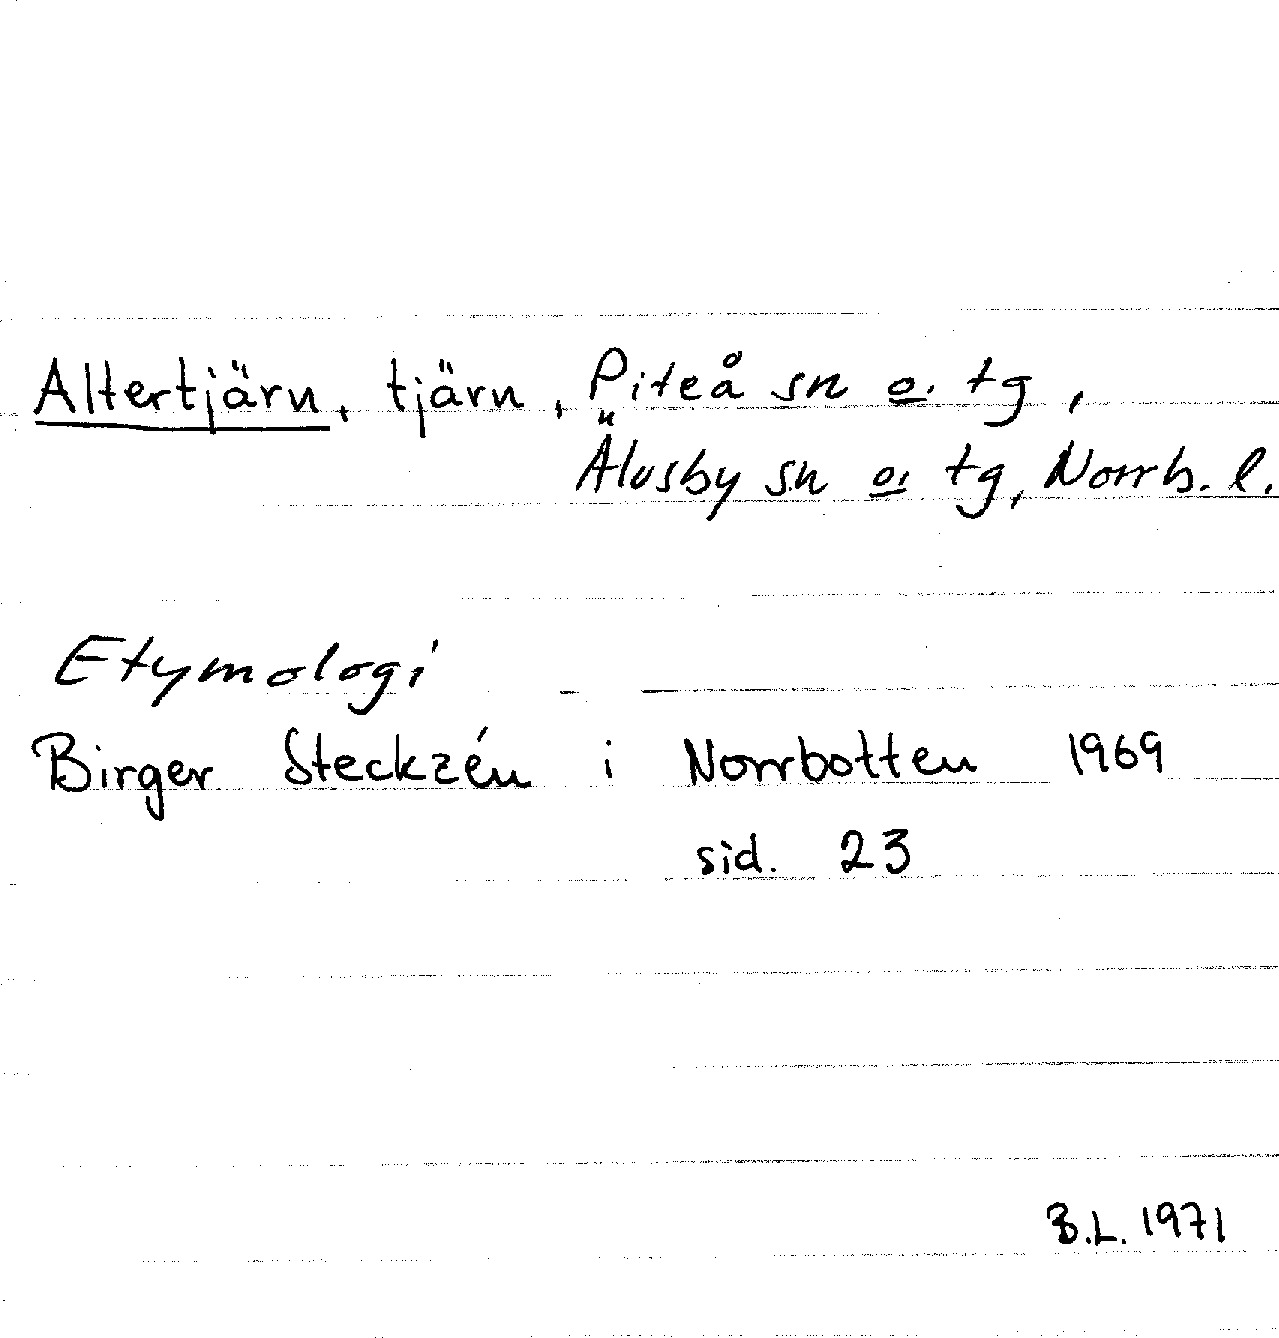 Altertjärn, tjärn, Piteå sn o. tg,
Älvsby sn o. tg, Norrb. l.
Etymologi
Birger Steckzén i Norrbotten 1969
sid. 23
B.L. 1971